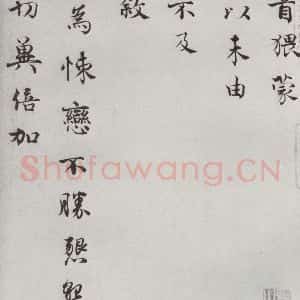 首猥蒙
以未由
不及
敘
為悚戀不勝懇
切冀倍加
Shufawang.CN